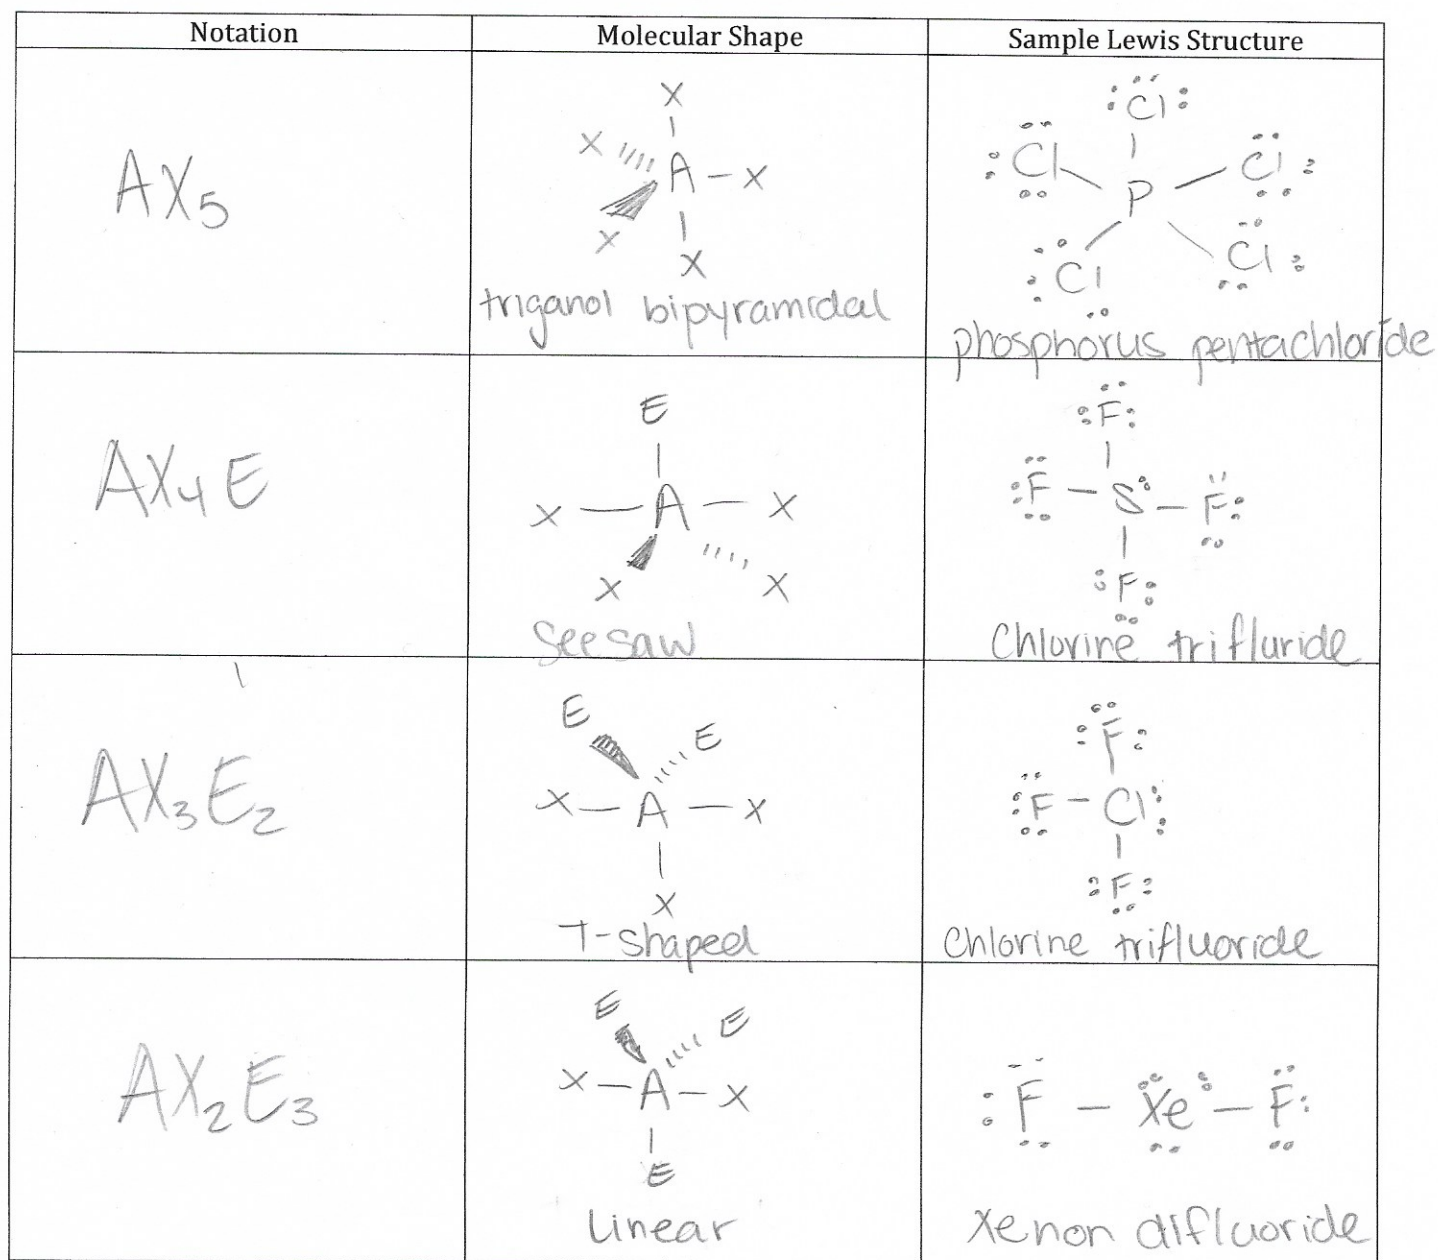 Notation
Molecular Shape
Sample Lewis Structure
AX5
X
X A – X
X
X
triganol bipyramidal
Cl
Cl Cl
P
Cl Cl
phosphorus pentachloride
AX4E
E
X — A — X
X X
seesaw
F
F – S – F
F
Chlorine trifluride
AX3E2
E E
X – A – X
X
T-shaped
F
F – Cl
F
Chlorine trifluoride
AX2E3
E E
X – A – X
E
Linear
F – Xe – F
Xenon difluoride